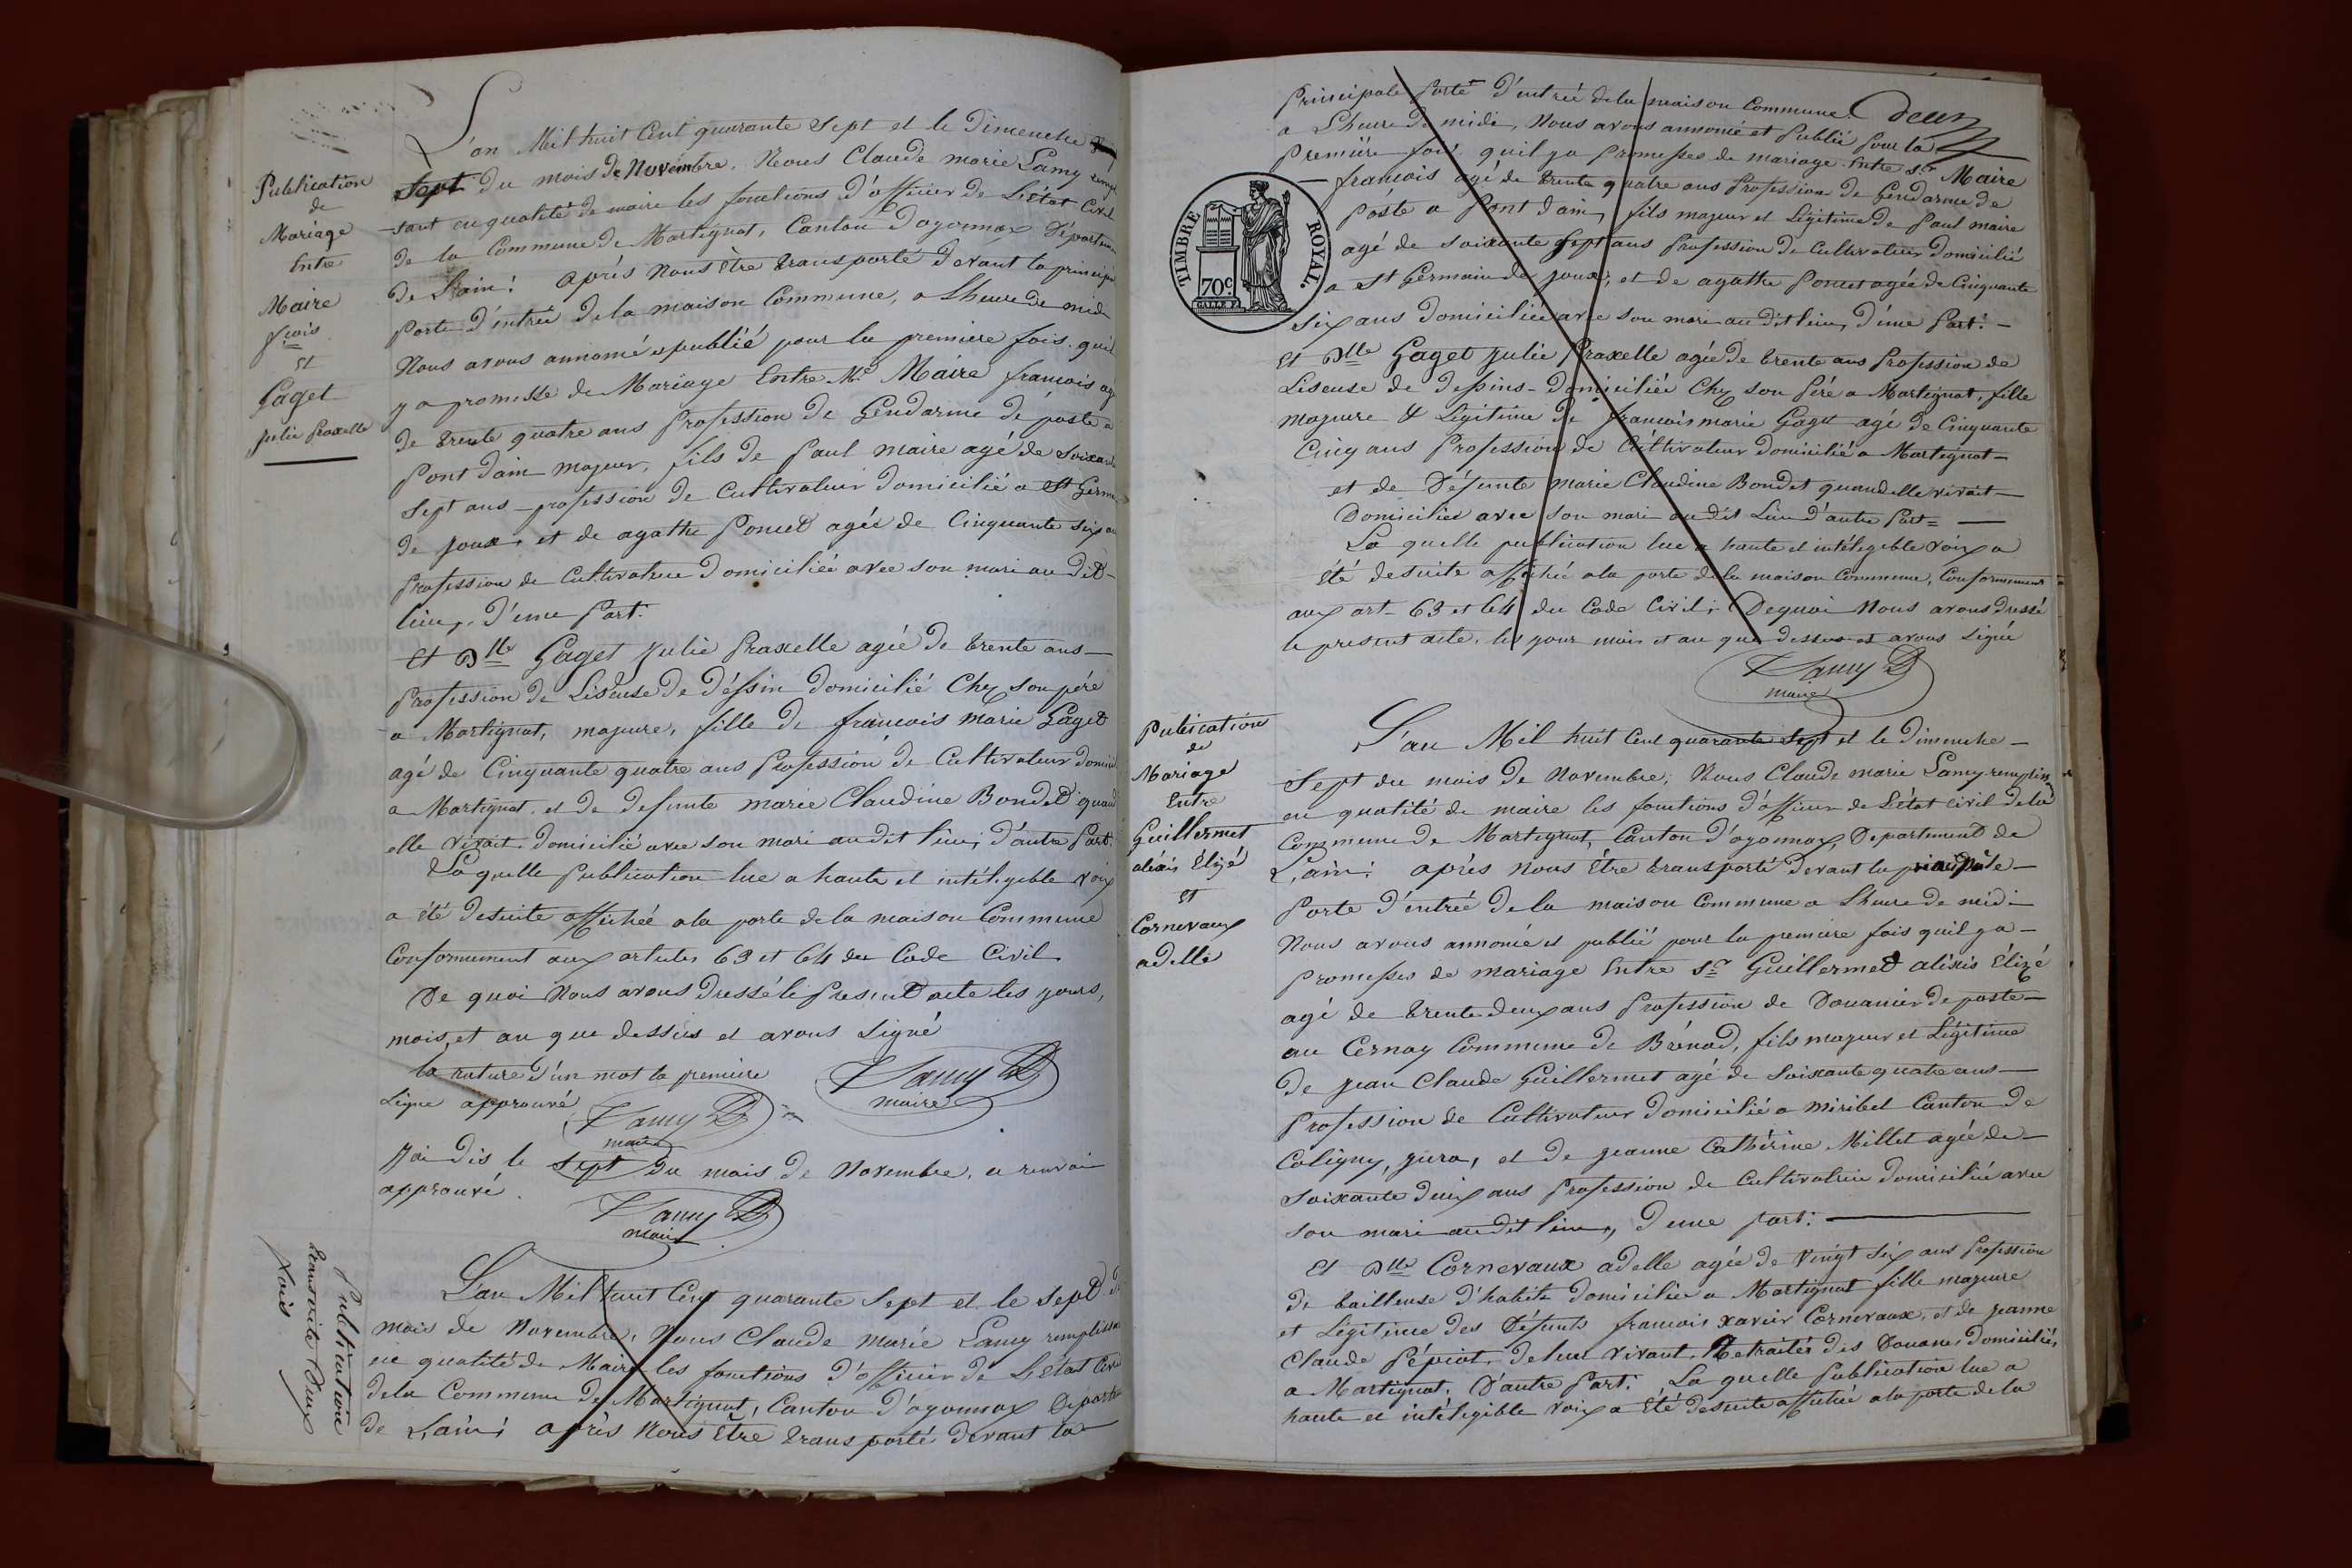 Publication
de
Mariage
Entre
Maire
fcois
et
Gaget
julie praxelle
L'an Mil huit Cent quarante Sept et le Dimenche
Sept du mois de Novembre. Nous Claude marie Lamy remplis
-sant en qualité de maire les fonctions d'officier de L'état Civil
de la Commune de Martignat, Canton d'oyonnax Départem
de L'ain; après Nous être transporté devant la principa
porte d'entrée de la maison Commune, a L'heure de midi
Nous avons annoncé et publié pour la premiere fois. quil
y a promesse de Mariage Entre Mr Maire francois agé
de trente quatre ans Profession de Gendarme de poste a
Pont dain majeur, fils de Paul maire agé de soixante
Sept ans - profession de Cultivateur Domicilié a St Germ
de joux, et de agathe Poncet agée de Cinquante six an
profession de Cultivatrice Domiciliée avec son mari au dit-
lieux, D'une part.
Et Dlle Gaget julie Praxelle agée de trente ans -
Profession de Liseuse de Déssin domicilié Chez son pére
a Martignat, majeure, fille de francois marie Gaget
agé de Cinquante quatre ans Profession de Cultivateur domicil
a Martignat. et de defunte marie Claudine Bondet quand
elle vivait. domicilié avec son mari au dit lieu, d'autre Part.
La quelle Publication lue a haute et intéligible voix
a été desuite affichée a la porte de la maison Commune
Conformement aux articles 63 et 64 du Code Civil.
De quoi Nous avons Dréssé le present acte les jours,
mois, et an que dessus et avons Signé
la rature d'un mot la premiere
Ligne approuvé
Lamy
maire
Lamy
maire
J'ai dis le Sept du mois de Novembre, en renvoi
approuvé.
Lamy
maire
Publication
transcrite deux
fois
L'an Mil huit Cent quarante Sept et le Sept d
mois de Novembre, Nous Claude Marie Lamy remplissa
en qualité de Maire les fonctions d'officier de L'état Civi
de la Commune de Martignat, Canton d'oyonnax Departe
de L'ain; après Nous Être transporté devant la
Principale Porte d'entrée de la maison Commune Deux
a L'heure de midi, Nous avons annoncé et Publié pour la
Première fois quil ya promesses de mariage Entre Sr Maire
francois agé de trente quatre ans Profession de Gendarme de
Poste a Pont dain, fils majeur et Légitime de Paul maire
agé de soixante Sept ans Profession de Cultivateur domicilié
a St Germain de joux, et de agathe Poncet agée de Cinquante
Six ans Domiciliée avec son mari au dit lieu, d'une Part. -
TIMBRE ROYAL.
70c
Et Dlle Gaget julie Praxelle agée de trente ans Profession de
Liseuse de dessins - Domiciliée Chez son Péré a Martignat, fille
majeure & Légitime de francois marie Gaget agé de Cinquante
Cinq ans Profession de Cultivateur domicilié a Martignat -
et de Défunte marie Claudine Bondet quand elle vivait -
Domiciliée avec son mari au dit Lieu d'autre Part =
La quelle publication lue a haute et intéligible voix a
Eté desuite affichée a la porte de la maison Commune, Conformement
aux art. 63 et 64 du Code Civil. De quoi Nous avons dressé
le present acte. les jour mois et an que dessus et avons Signé
Lamy
maire
Publication
de
Mariage
Entre
Guillermet
aléxis Élizé
et
Cornevaux
adelle
L'an Mil huit Cent quarante Sept et le Dimenche -
Sept du mois de Novembre; Nous Claude marie Lamy remplissa
en qualité de maire les fonctions d'officier de L'état civil de la
Commune de Martignat, Canton d'oyonnax, Departement de
L'ain; après Nous Être transporté devant la principale -
Porte d'entrée de la maison Commune a L'heure de midi -
Nous avons annoncé et publié pour la premiere fois quil ya -
promesses de mariage Entre Sr Guillermet aléxis Élizé
agé de trente deux ans Profession de Douanier de poste -
au Cernay Commune de Brénod, fils majeur et Légitime
de jean Claude Guillermet agé de soixante quatre ans -
Profession de Cultivateur Domicilié a miribel Canton de
Coligny, jura, et de jeanne Cathérine Millet agée de -
soixante deux ans Profession de Cultivatrice domiciliée avec
son mari au dit lieu, d'une part.
Et Dlle Cornevaux adelle agée de vingt six ans Profession
de tailleuse d'habits domiciliée a Martignat fille majeure
et Légitime des Défunts francois xavier Cornevaux, et de jeanne
Claude Pépiot, de leur vivant, Retraités des Douanes, domiciliés,
a Martignat. D'autre Part. La quelle Publication lue a
haute et intéligible voix a Eté desuite affichée a la porte de la